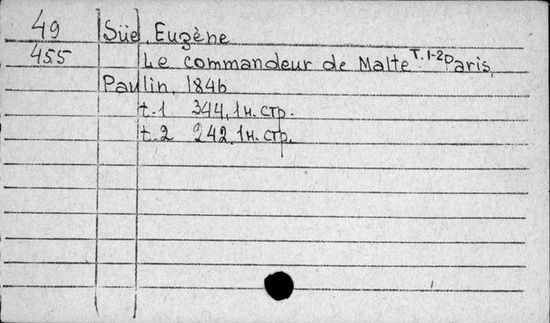 49 Süe, Eugène
455 Le commandeur de Malte T. 1-2 Paris,
Paulin, 1846
t.1 344, 1 н. стр.
t.2 242. 1 н. стр.